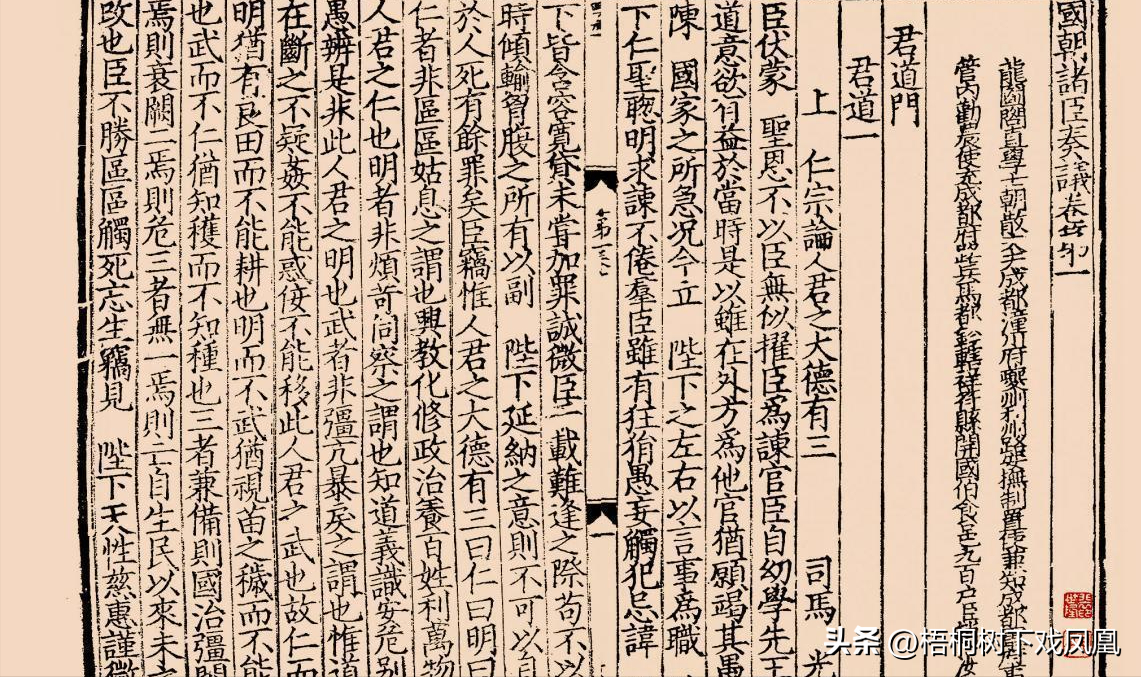 國朝諸臣奏議卷第一
龍圖閣直學士朝散大夫成都潼川府夔州利州路安撫制置使兼知成都軍府事
管內勸農使充成都府路兵馬都鈐轄祥符縣開國伯食邑九百戶臣趙汝
君道門
君道一
上 仁宗論人君之大德有三 司馬 光
臣伏蒙 聖恩不以臣無似擢臣為諫官臣自幼學先王
道意欲有益於當時是以雖在外方為他官猶願竭其愚
陳 國家之所急況今立 陛下之左右以言事為職
下仁聖聰明求諫不倦羣臣雖有狂狷愚妄觸犯忌諱
下皆含容寬貸未嘗加罪誠微臣千載難逢之際苟不以
時傾輸智腹之所有以副 陛下延納之意則不可以自
於人死有餘罪矣臣竊惟人君之大德有三曰仁曰明曰
仁者非嫗嫗姑息之謂也興教化修政治養百姓利萬物
人君之仁也明者非煩苛伺察之謂也知道義識安危別
愚辨是非此人君之明也武者非彊亢暴戾之謂也惟道
在斷之不疑姦不能惑佞不能移此人君之武也故仁而
明猶有良田而不能耕也明而不武猶視苗之穢而不能
也武而不仁猶知穫而不知種也三者兼備則國治彊闕
焉則衰闕二焉則危三者無一焉則亡自生民以來未之
改也臣不勝區區觸死忘生竊見 陛下天性慈惠謹微
头条 @梧桐树下戏凤凰